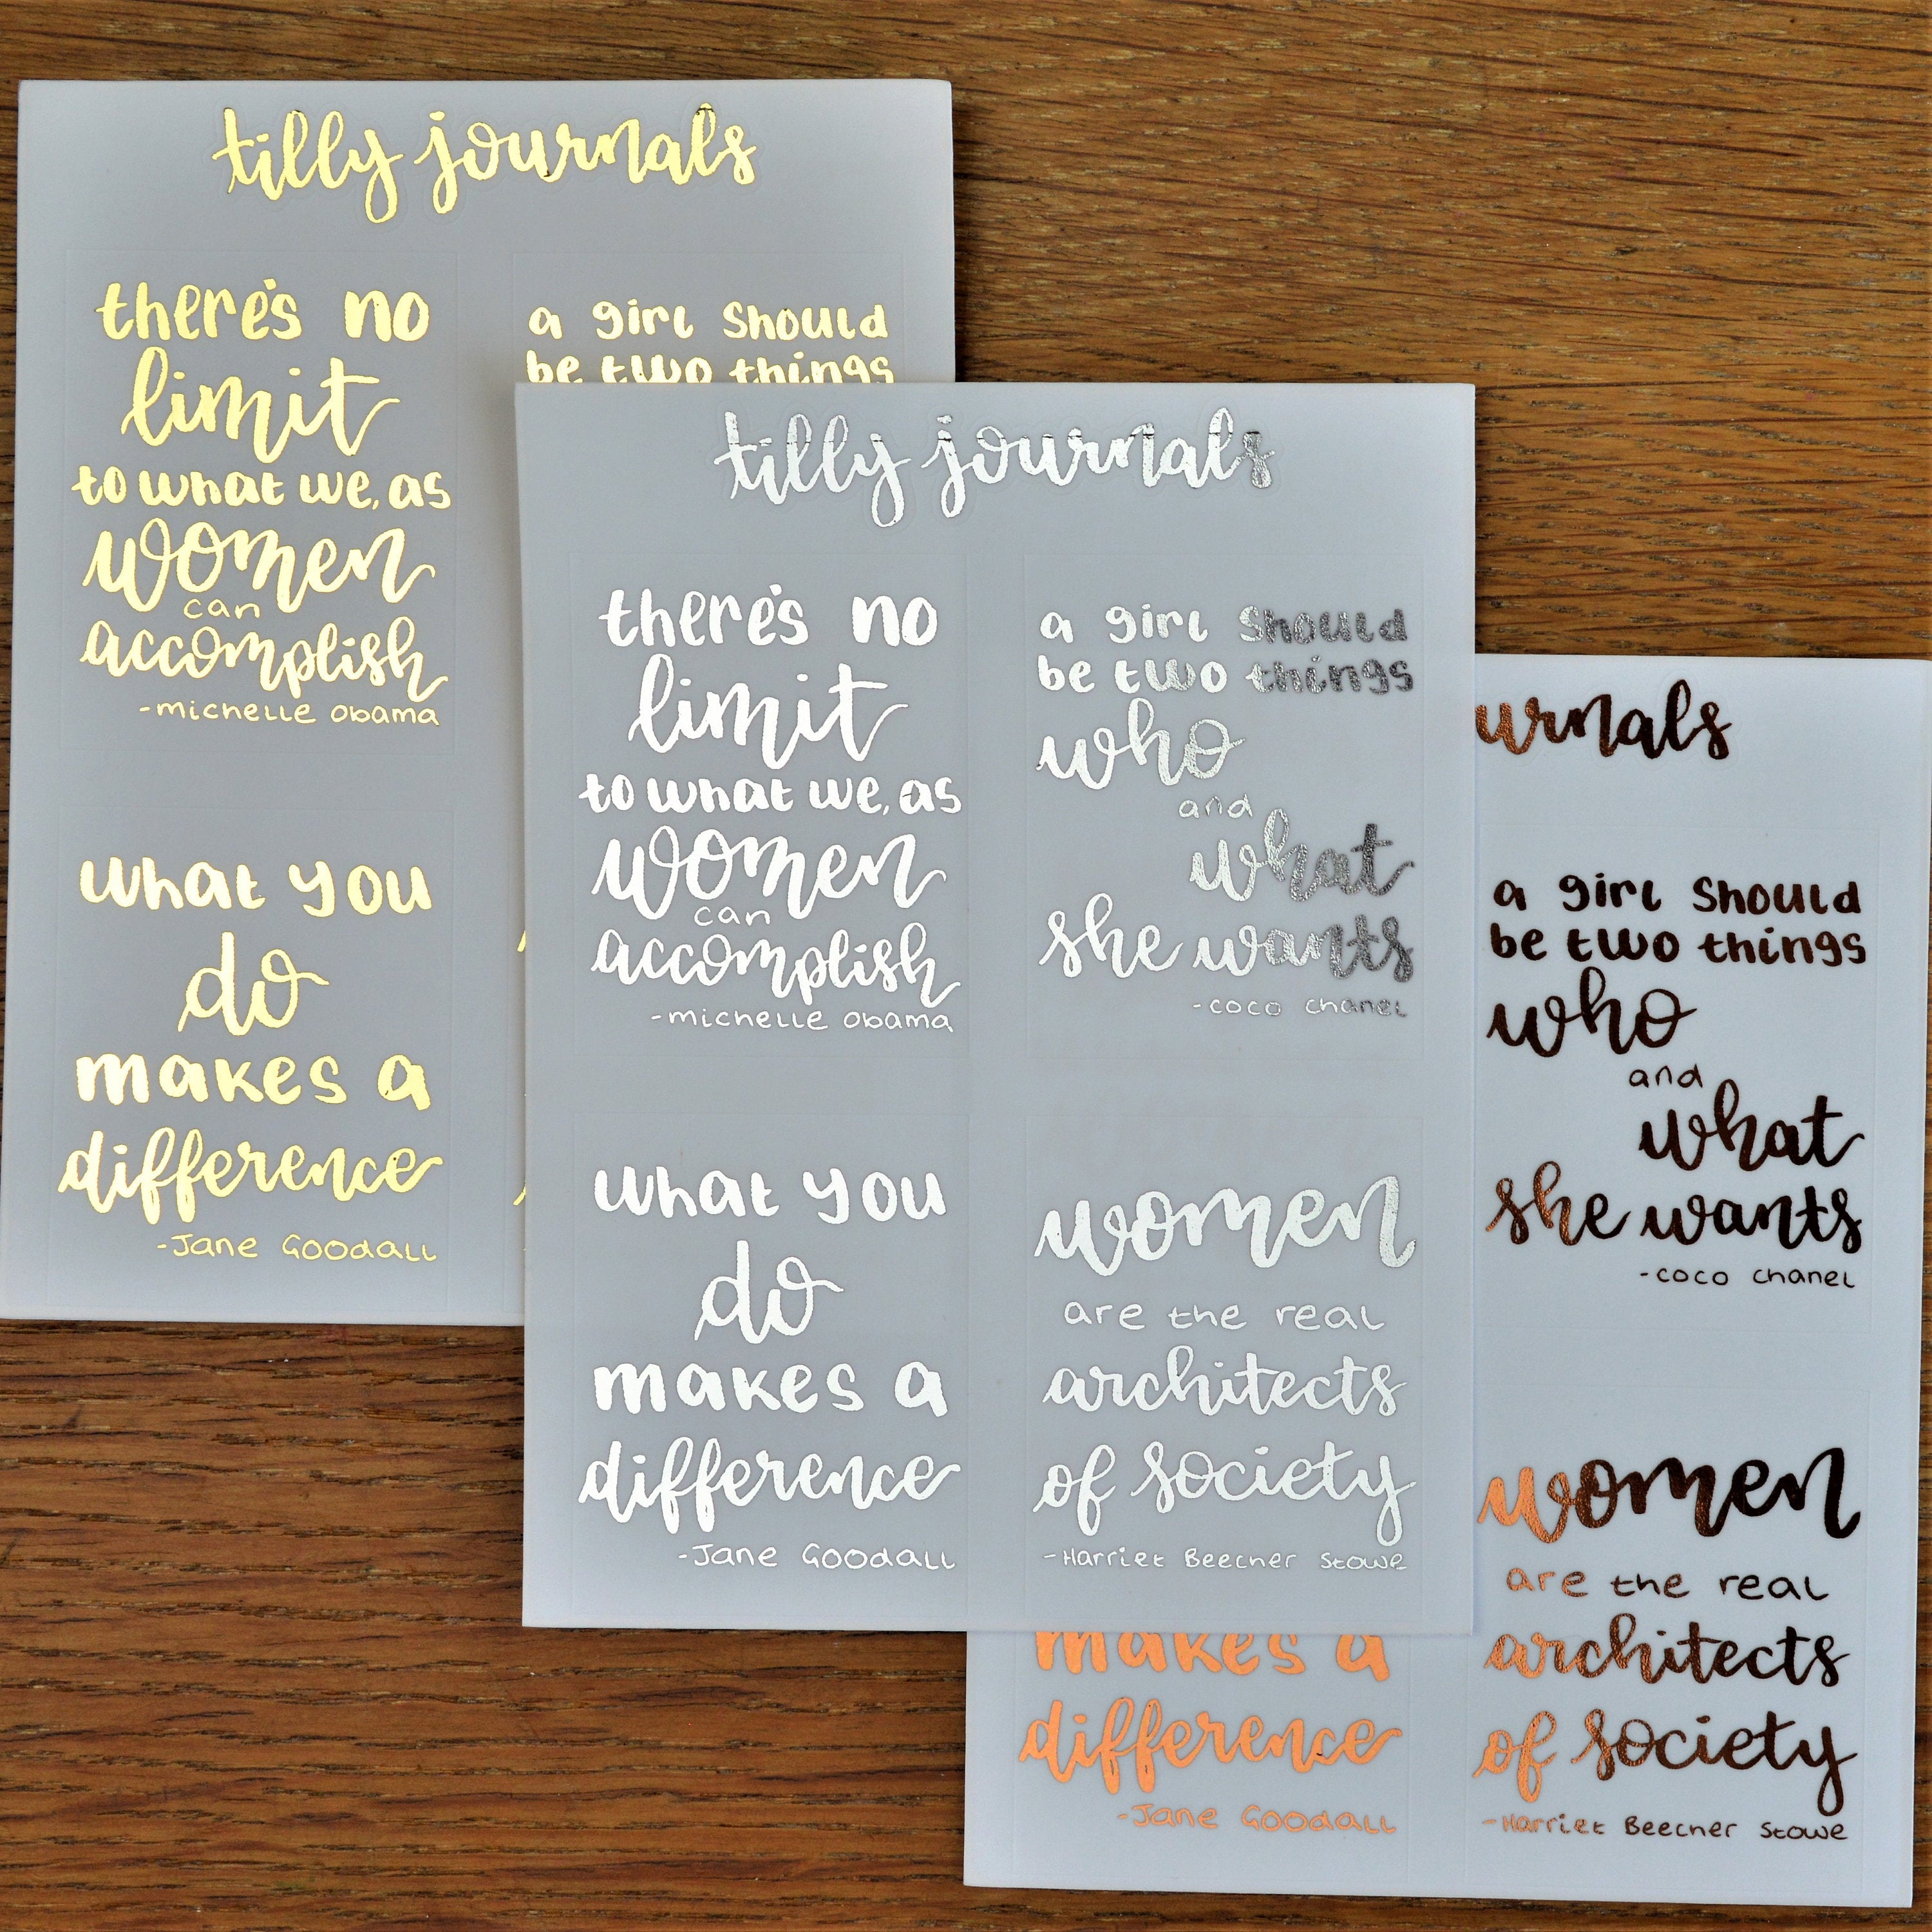 tilly journals
there's no
limit
to what we, as
women
can
accomplish
-michelle obama
a girl should
be two things
what you
do
makes a
difference
-Jane Goodall
tilly journals
there's no
limit
to what we, as
women
can
accomplish
-michelle obama
a girl should
be two things
who
and
what
she wants
-coco chanel
what you
do
makes a
difference
-Jane Goodall
women
are the real
architects
of society
-Harriet Beecher Stowe
urnals
a girl should
be two things
who
and
what
she wants
-coco chanel
makes a
difference
-Jane Goodall
women
are the real
architects
of society
-Harriet Beecher Stowe